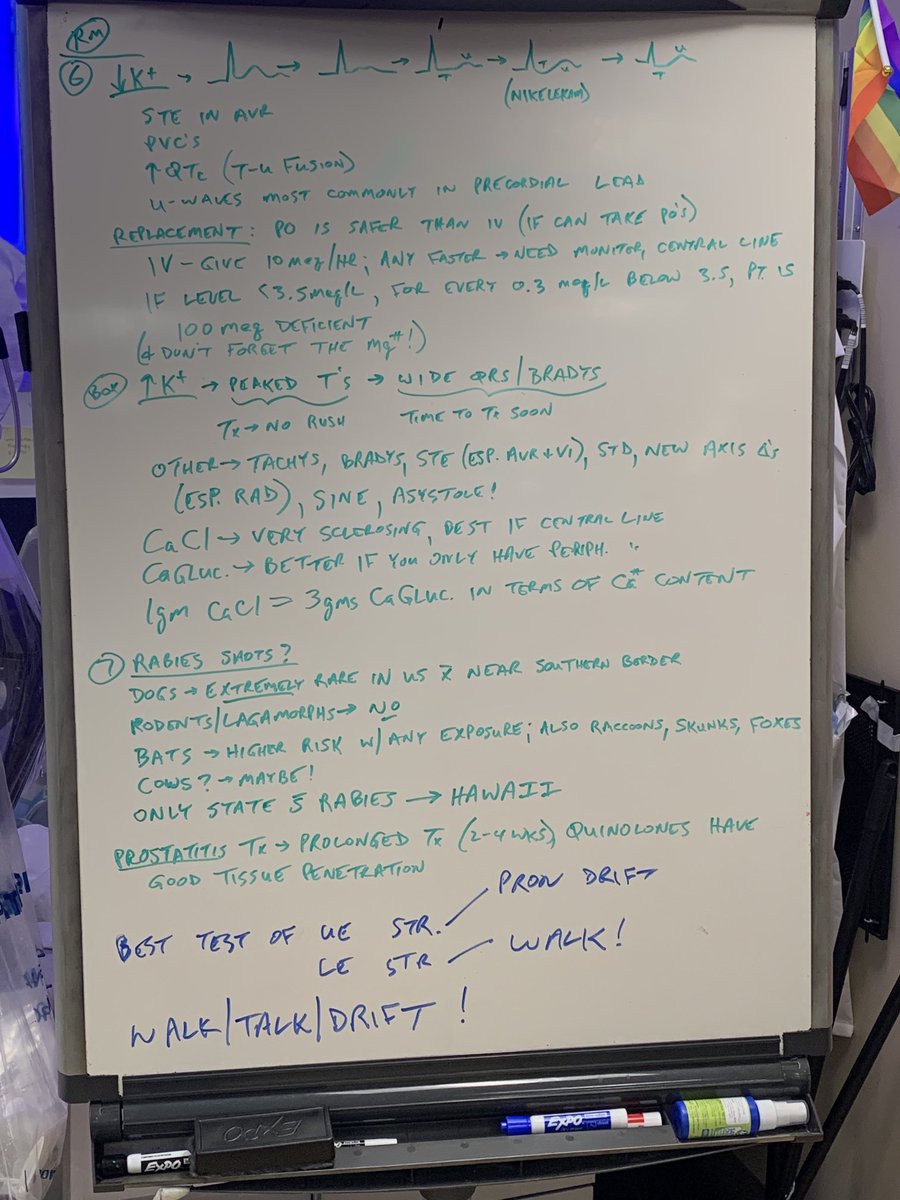 RM
6 ↓K+ → → → T U → T U → T U
(NIKELERAM)
STE IN AVR
PVC'S
↑ QTc (T-U FUSION)
U-WAVES MOST COMMONLY IN PRECORDIAL LEAD
REPLACEMENT: PO IS SAFER THAN IV (IF CAN TAKE PO'S)
IV - GIVE 10 meq/HR; ANY FASTER → NEED MONITOR, CENTRAL LINE
IF LEVEL <3.5 meq/L, FOR EVERY 0.3 meq/L BELOW 3.5, PT. IS
100 meq DEFICIENT
(& DON'T FORGET THE Mg++!)
BOX ↑K+ → PEAKED T'S → WIDE QRS/BRADYS
Tx → NO RUSH TIME TO Tx SOON
OTHER → TACHYS, BRADYS, STE (ESP. AVR + V1), STD, NEW AXIS Δ's
(ESP. RAD), SINE, ASYSTOLE!
CaCl → VERY SCLEROSING, BEST IF CENTRAL LINE
CaGLUC. → BETTER IF YOU ONLY HAVE PERIPH.
1gm CaCl = 3gms CaGLUC. IN TERMS OF Ca++ CONTENT
7 RABIES SHOTS?
DOGS → EXTREMELY RARE IN US x̄ NEAR SOUTHERN BORDER
RODENTS/LAGAMORPHS → NO
BATS → HIGHER RISK W/ANY EXPOSURE; ALSO RACCOONS, SKUNKS, FOXES
COWS? → MAYBE!
ONLY STATE s̄ RABIES → HAWAII
PROSTATITIS Tx → PROLONGED Tx (2-4 WKS), QUINOLONES HAVE
GOOD TISSUE PENETRATION
BEST TEST OF UE STR. PRON DRIFT
LE STR WALK!
WALK/TALK/DRIFT!
EXPO
EXPO
EXPO